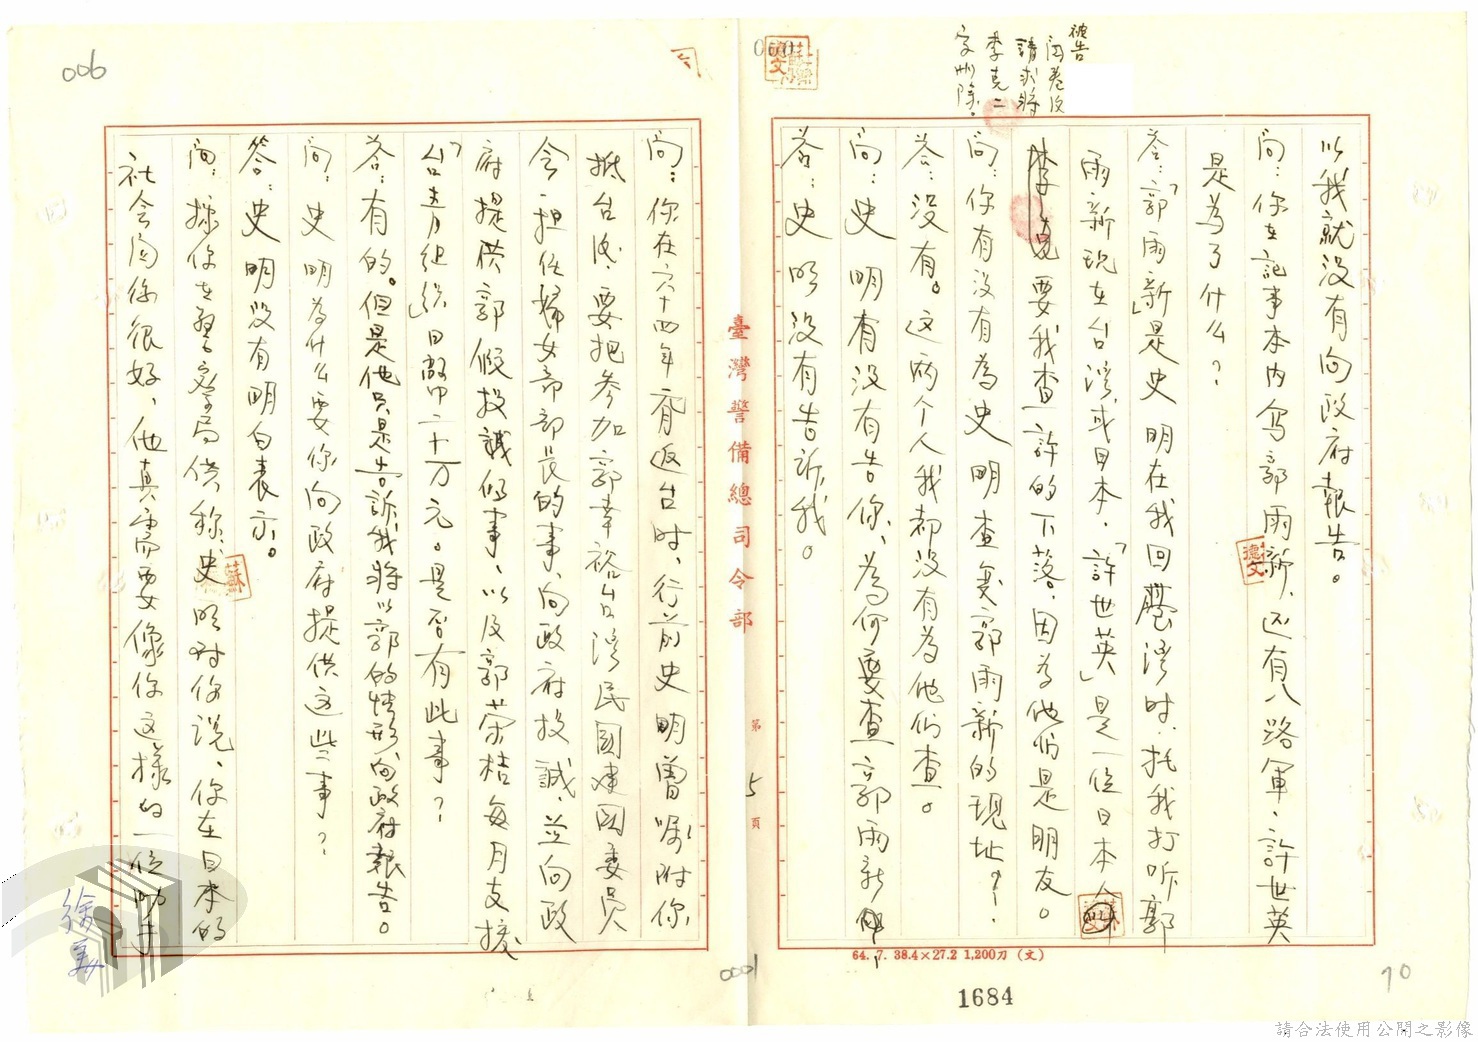 被告
閱卷後
請求將
李克二
字刪除。
以我就没有向政府報告。
問：你在記事本內写郭雨新，还有八路軍，許世英
是為了什么？
答：「郭雨新」是史明在我回臺湾時，托我打听郭
雨新現在台湾，或日本，「許世英」是一位日本人
李克要我查許的下落，因為他们是朋友。
問：你有没有為史明查覓郭雨新的現址？
答：没有。这兩个人我都没有為他们查。
問：史明有没有告你，為何要查郭雨新
答：史明没有告訴我。
臺灣警備總司令部
第 5 頁
問：你在六十四年 返台時，行前史明曾囑咐你
抵台後，要把參加郭幸裕台湾民國建国委員
会，担任婦女部部長的事，向政府投誠，並向政
府提供郭假投誠的事，以及郭荣桔每月支援
「台青組織」日幣二十万元。是否有此事？
答：有的。但是他只是告訴我將以郭的情形，向政府報告。
問：史明為什么要你向政府提供这些事？
答：史明没有明白表示。
問：據你在警察局供称，史明对你説，你在日本的
社会関係很好，他真需要像你这樣的一位助手
006
0001
64. 7. 38.4×27.2 1,200刀（文）
1684
70
請合法使用公開之影像